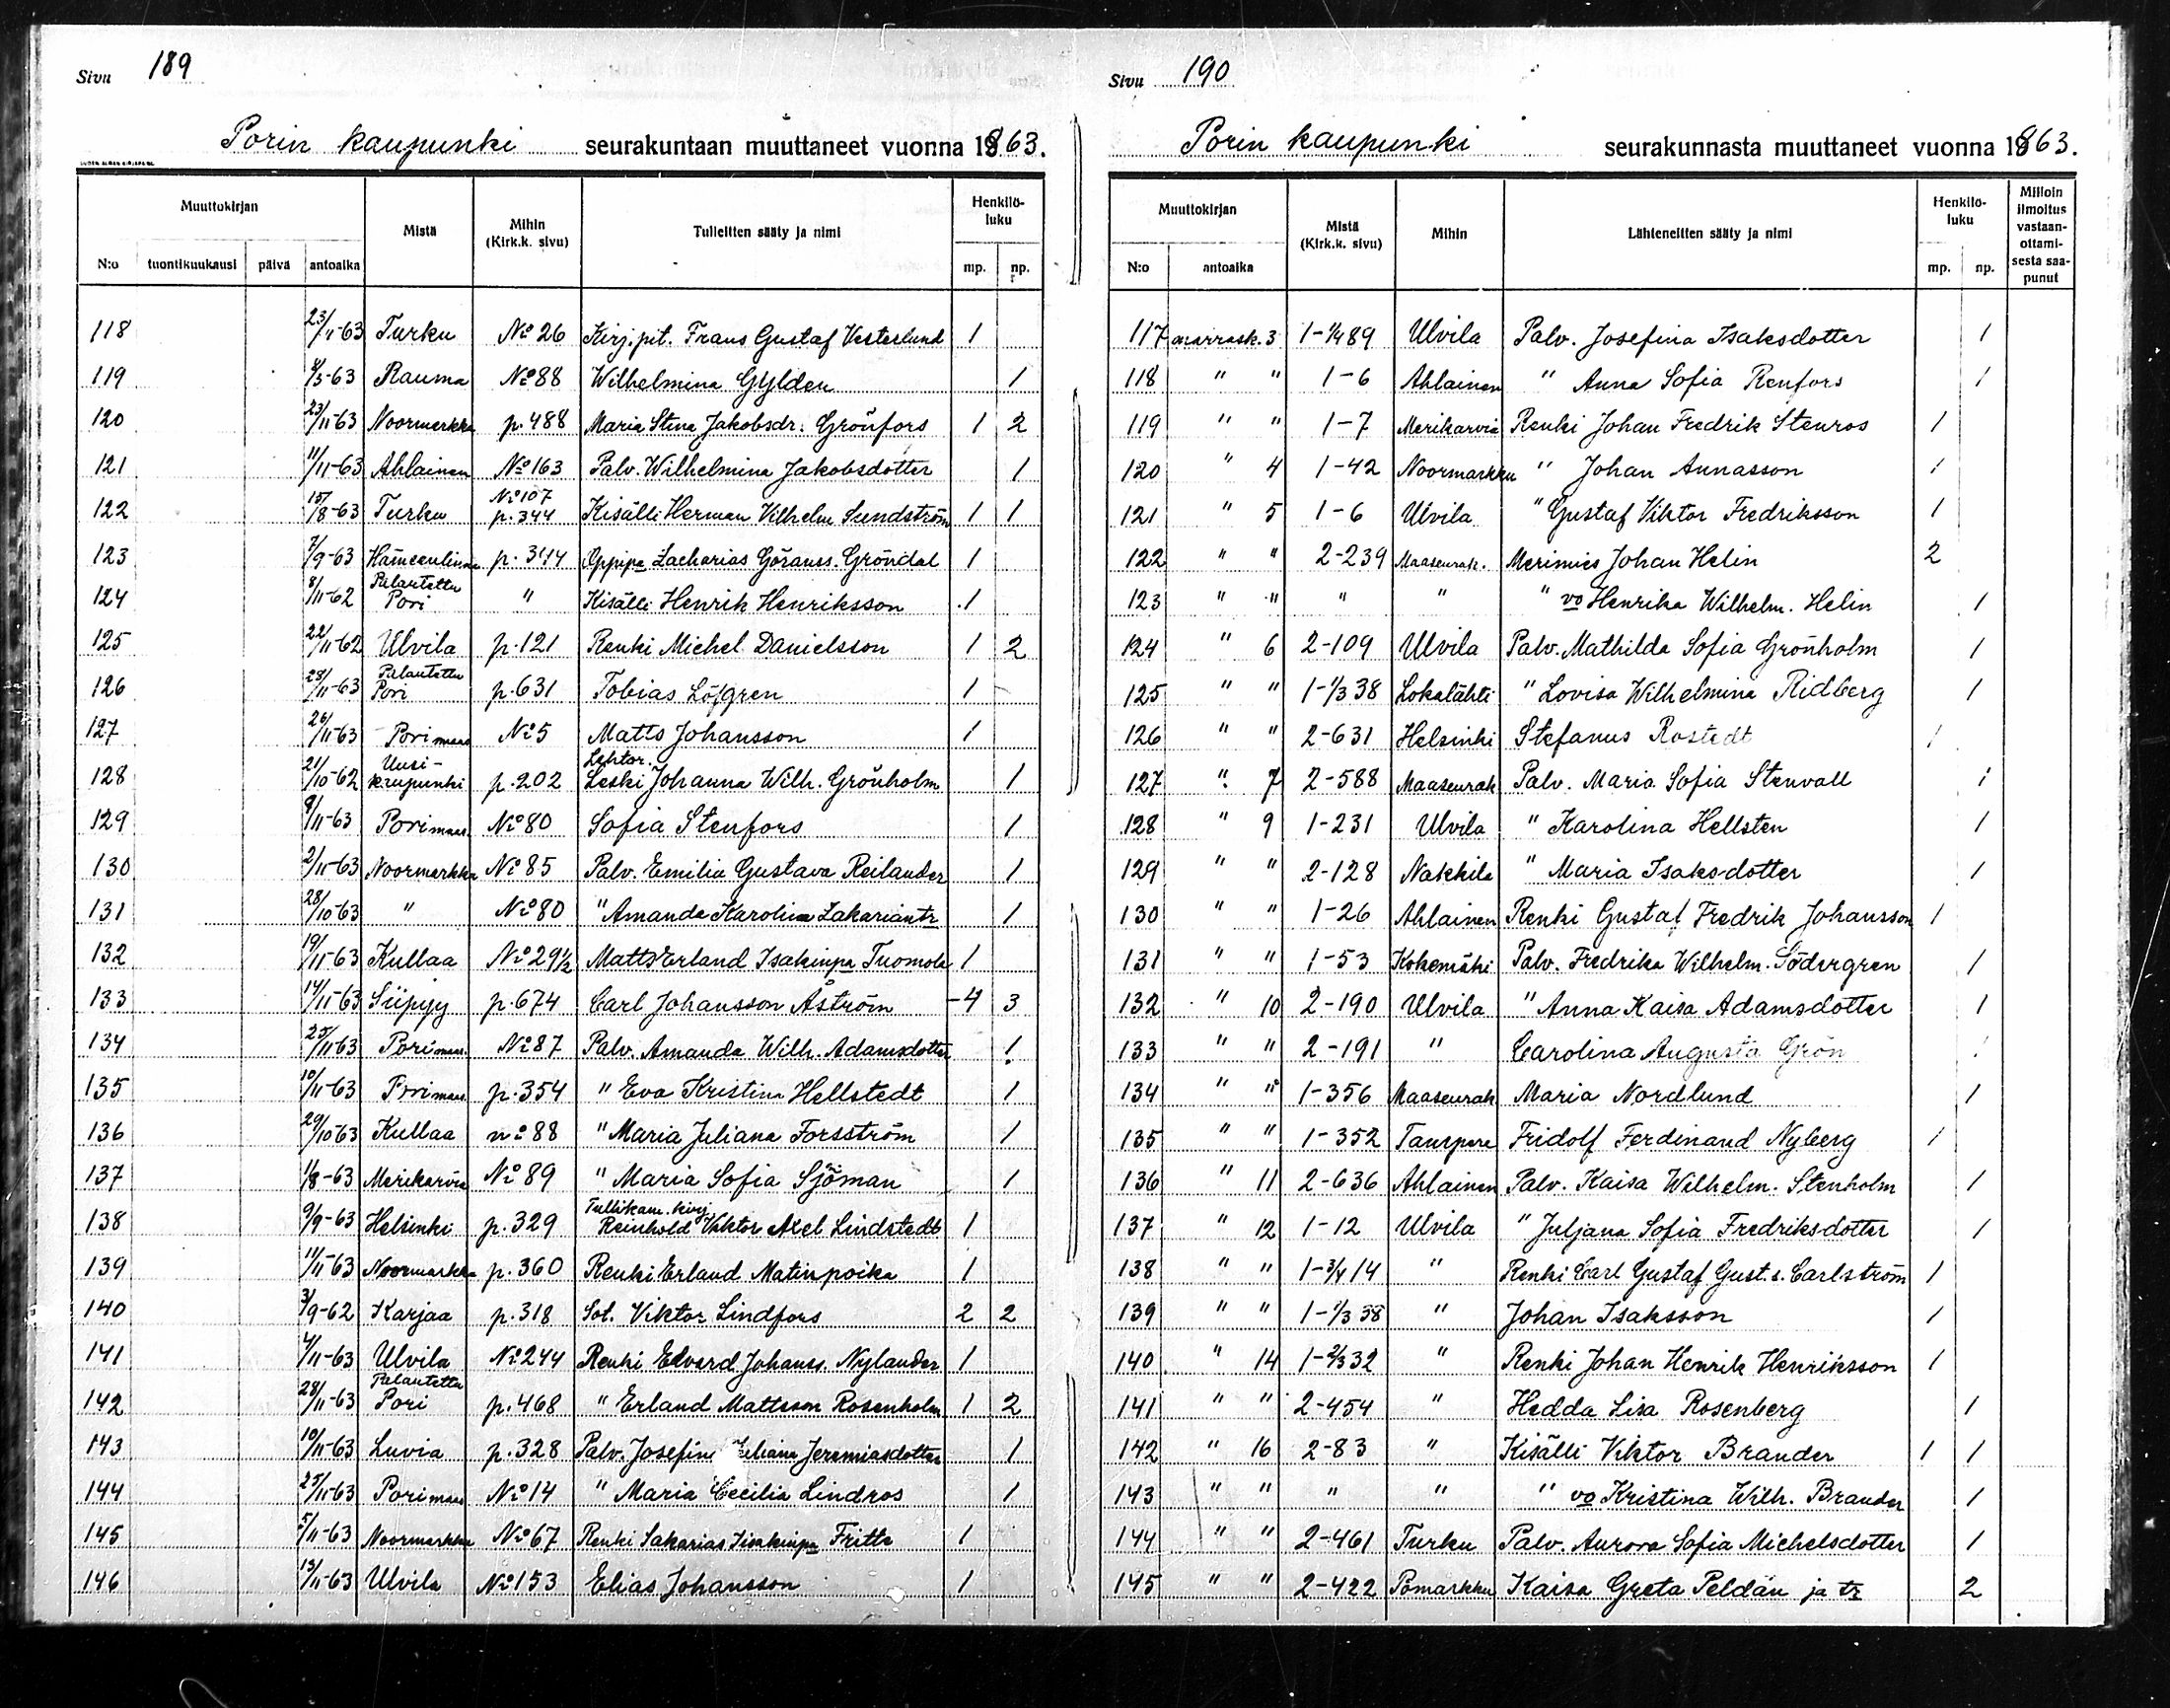 Sivu 189
Porin kaupunki seurakuntaan muuttaneet vuonna 1863.
Muuttokirjan Mistä Mihin (Kirk.k. sivu) Tulleitten sääty ja nimi Henkilöluku
N:o tuontikuukausi päivä antoaika mp. np.
118 23/11-63 Turku No 26 Kirj.pit. Frans Gustaf Vesterlund 1
119 4/5-63 Rauma No 88 Wilhelmina Gylden 1
120 23/11-63 Noormarkku p. 488 Maria Stina Jakobsdr. Grönfors 1 2
121 11/11-63 Ahlainen No 163 Palv. Wilhelmina Jakobsdotter 1
122 15/8-63 Turku No 107 p. 344 Kisälli Herman Vilhelm Sundström 1 1
123 7/9-63 Hämeenlinna p. 344 Oppipa Zacharias Göranss. Gröndal 1
124 8/11-62 Palautettu Pori " Kisälli Henrik Henriksson 1
125 22/11-62 Ulvila p. 121 Renki Michel Danielsson 1 2
126 28/11-63 Palautettu Pori p. 631 Tobias Löfgren 1
127 26/11-63 Pori maas No 5 Matts Johansson 1
128 21/10-62 Uusi-kaupunki p. 202 Lehtor. Leski Johanna Wilh. Grönholm 1
129 9/11-63 Pori maas. No 80 Sofia Stenfors 1
130 2/11-63 Noormarkku No 85 Palv. Emilia Gustava Reilander 1
131 28/10-63 " No 80 " Amanda Karolina Zakariantr 1
132 19/11-63 Kullaa No 29 1/2 Matts Erland Isakinpa Tuomola 1
133 14/11-63 Siipyy p. 674 Carl Johansson Åström -4 3
134 25/11-63 Pori maas. No 87 Palv. Amanda Wilh. Adamsdotter 1
135 10/11-63 Pori maas. p. 354 " Eva Kristina Hellstedt 1
136 29/10-63 Kullaa no 88 " Maria Juliana Forsström 1
137 1/8-63 Merikarvia No 89 " Maria Sofia Sjöman 1
138 9/9-63 Helsinki p. 329 Tullikam. kirj. Reinhold Viktor Axel Lindstedt 1
139 11/11-63 Noormarkku p. 360 Renki Erland Matinpoika 1
140 3/9-62 Karjaa p. 318 Sot. Viktor Lindfors 2 2
141 4/11-63 Ulvila No 244 Renki Edvard Johanss. Nylander 1
142 28/11-63 Palautettu Pori p. 468 " Erland Mattsson Rosenholm 1 2
143 10/11-63 Luvia p. 328 Palv. Josefina Juliana Jeremiasdotter 1
144 25/11-63 Pori maas No 14 " Maria Cecilia Lindros 1
145 5/11-63 Noormarkku No 67 Renki Sakarias Iisakinpa Fritte 1
146 13/11-63 Ulvila No 153 Elias Johansson 1
Sivu 190
Porin kaupunki seurakunnasta muuttaneet vuonna 1863.
Muuttokirjan Mistä (Kirk.k. sivu) Mihin Lähteneitten sääty ja nimi Henkilöluku Milloin ilmoitus vastaanottamisesta saapunut
N:o antoaika mp. np.
117 marrask. 3 1-1/4 89 Ulvila Palv. Josefina Isaksdotter 1
118 " " 1-6 Ahlainen " Anna Sofia Renfors 1
119 " " 1-7 Merikarvia Renki Johan Fredrik Stenros 1
120 " 4 1-42 Noormarkku " Johan Annasson 1
121 " 5 1-6 Ulvila " Gustaf Viktor Fredriksson 1
122 " " 2-239 Maaseurak. Merimies Johan Helin 2
123 " " " " " vo Henrika Wilhelm. Helin 1
124 " 6 2-109 Ulvila Palv. Mathilda Sofia Grönholm 1
125 " " 1-1/3 38 Lokalahti " Lovisa Wilhelmina Ridberg 1
126 " " 2-631 Helsinki Stefanus Rostedt 1
127 " 7 2-588 Maaseurak Palv. Maria Sofia Stenvall 1
128 " 9 1-231 Ulvila " Karolina Hellsten 1
129 " " 2-128 Nakkila " Maria Isaksdotter 1
130 " " 1-26 Ahlainen Renki Gustaf Fredrik Johansson 1
131 " " 1-53 Kokemäki Palv. Fredrika Wilhelm. Södergren 1
132 " 10 2-190 Ulvila " Anna Kaisa Adamsdotter 1
133 " " 2-191 " Carolina Augusta Grön 1
134 " " 1-356 Maaseurak Maria Nordlund 1
135 " " 1-352 Tampere Fridolf Ferdinand Nyberg 1
136 " 11 2-636 Ahlainen Palv. Kaisa Wilhelm. Stenholm 1
137 " 12 1-12 Ulvila " Juljana Sofia Fredriksdotter 1
138 " " 1-3/4 14 " Renki Carl Gustaf Gust.s. Carlström 1
139 " " 1-1/3 38 " Johan Isaksson 1
140 " 14 1-2/3 32 " Renki Johan Henrik Henriksson 1
141 " " 2-454 " Hedda Lisa Rosenberg 1
142 " 16 2-83 " Kisälli Viktor Brander 1 1
143 " " " " " vo Kristina Wilh. Brander 1
144 " " 2-461 Turku Palv. Aurora Sofia Michelsdotter 1
145 " " 2-422 Pomarkku Kaisa Greta Peldán ja tr 2